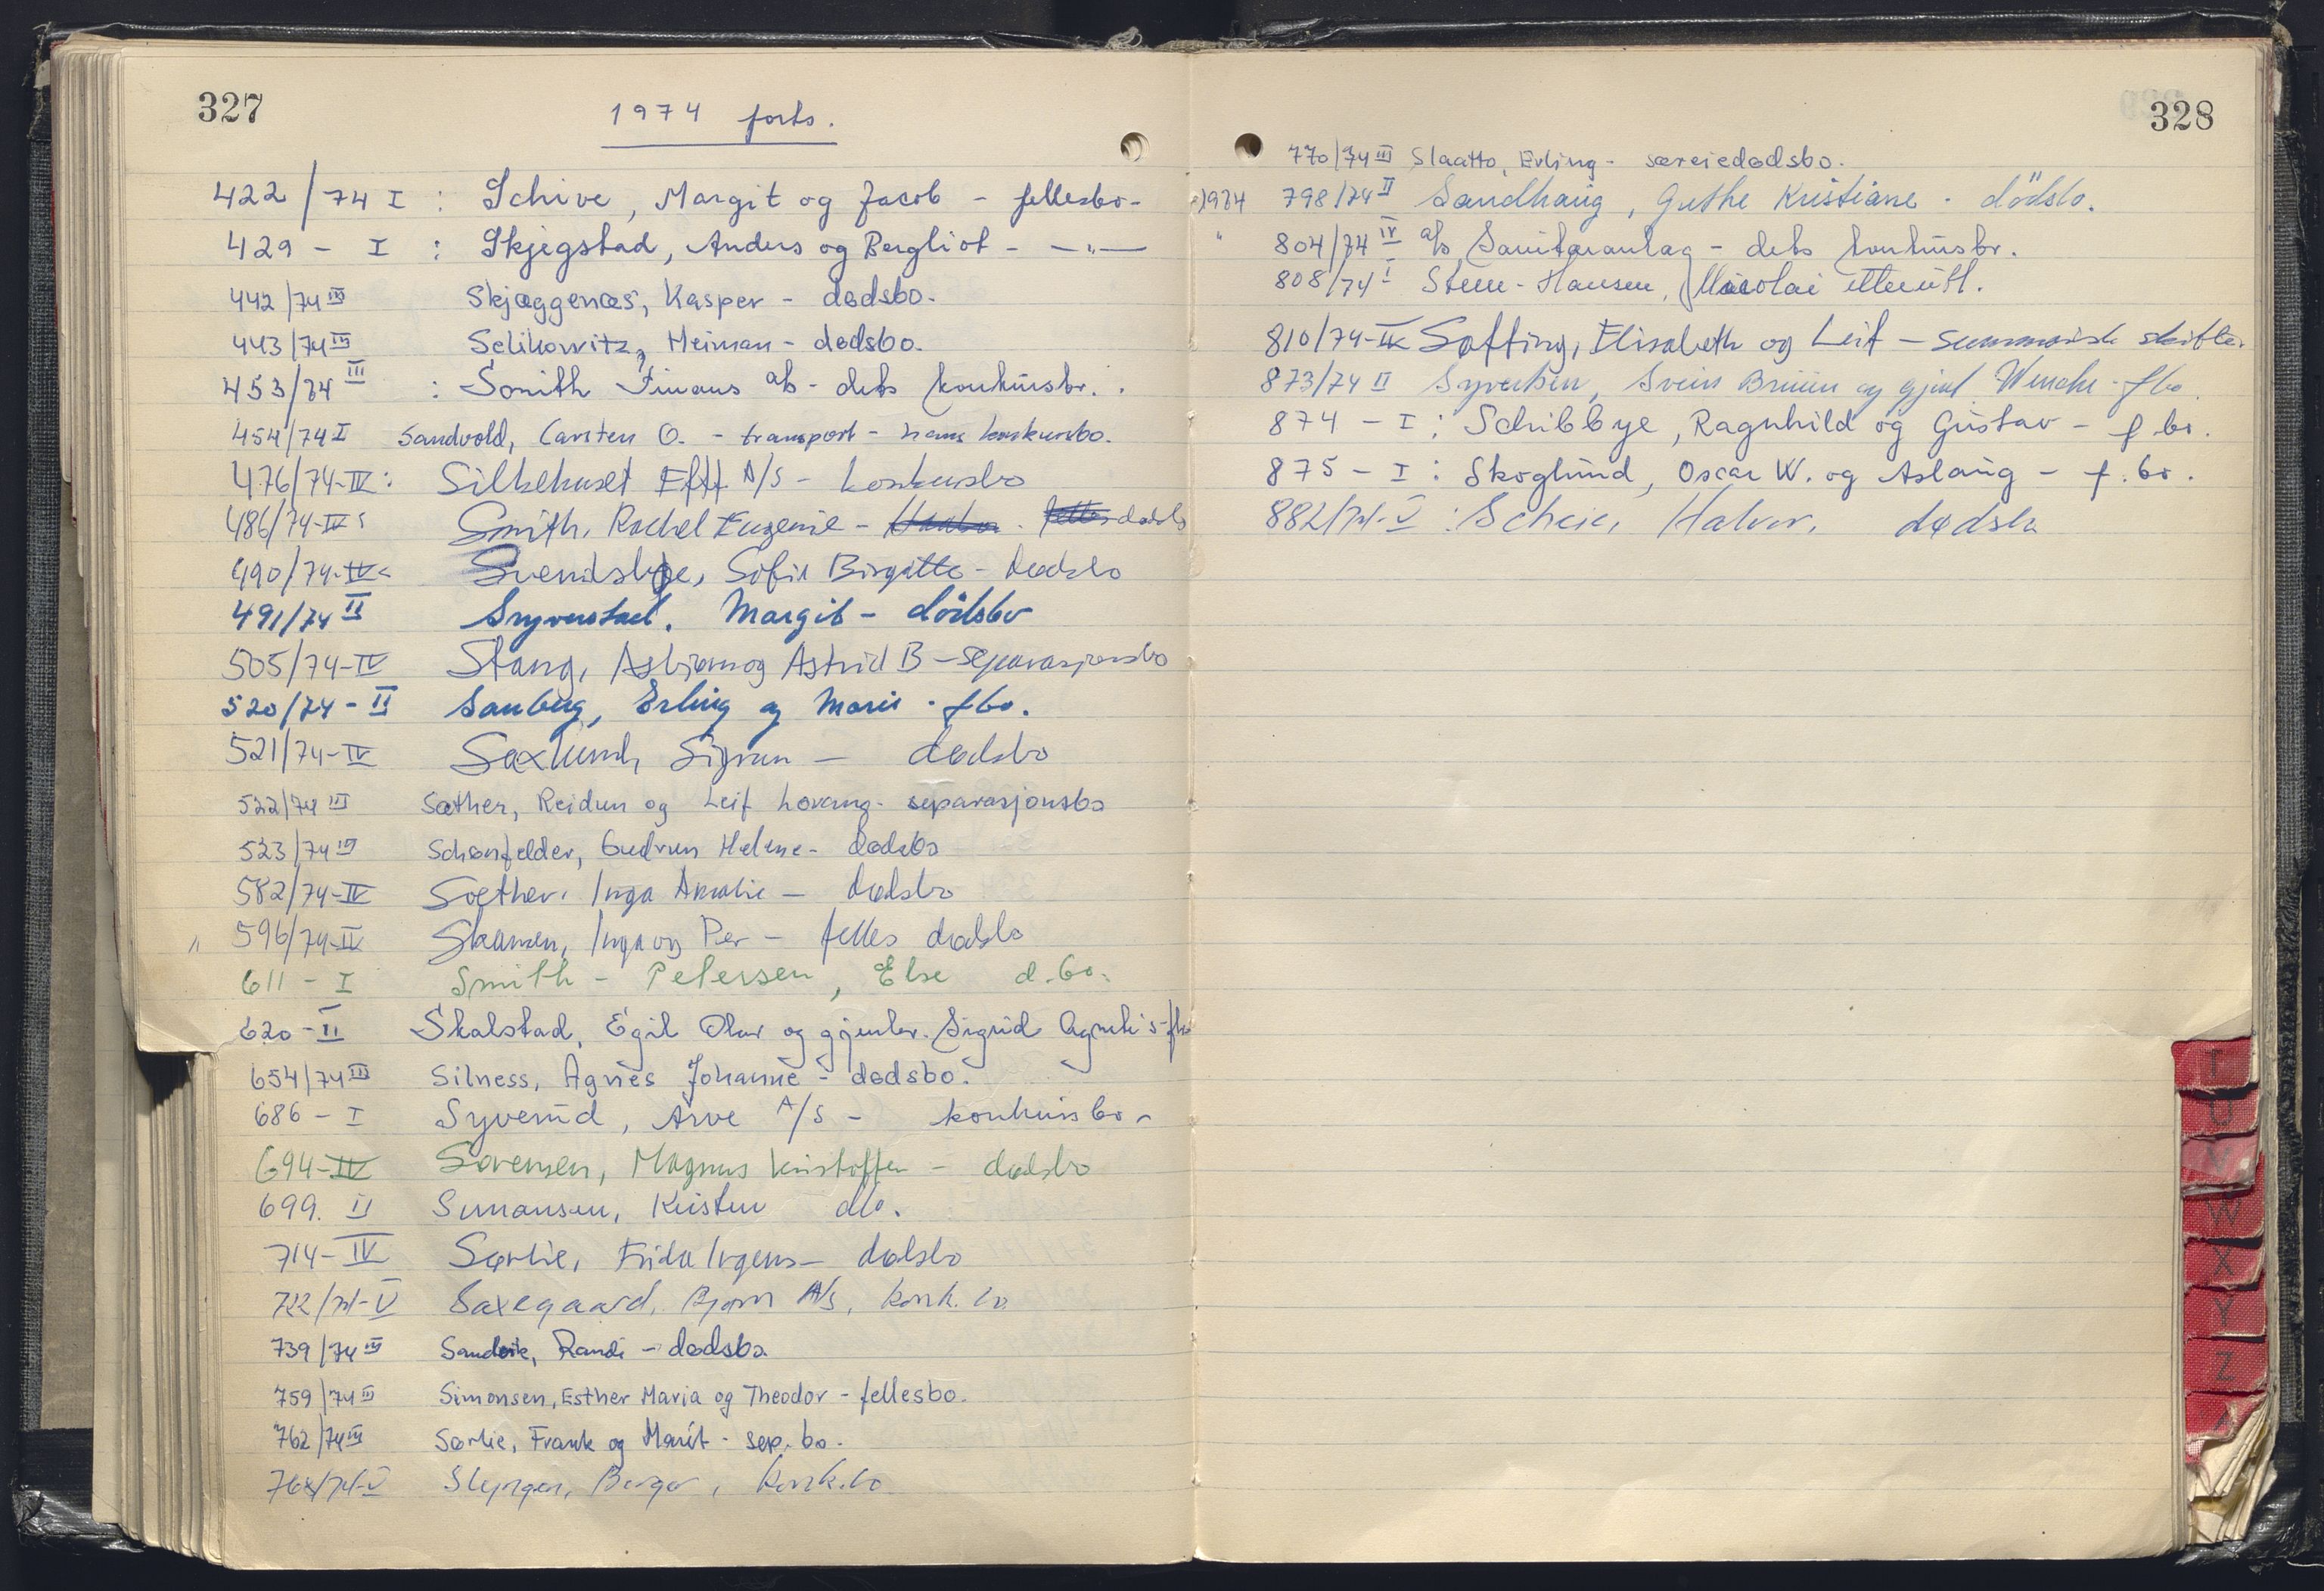 327
1974 forts.
422/74 I : Schive, Margit og Jacob - fellesbo-
429 - I : Skjegstad, Anders og Bergliot - —"—
442/74 III Skjæggenæs, Kasper - dødsbo.
443/74 III Selikowitz, Heiman - dødsbo.
453/74 III : Sonith Finans a/s - dets konkursbr.
454/74 I Sandvold, Carsten O. - transport - hans konkursbo.
476/74-IV: Silkehuset Eftf A/S - konkursbo
486/74-IV: Smith, Rachel Eugenie - dødsbo
490/74-IV: Sofie Birgitte - dødsbo
491/74 II Syverstad, Margit - dödsbo
505/74-IV Stang, Asbjørn og Astrid B - separasjonsbo
520/74 - II Sanberg, Erling og Marie - fbo.
521/74-IV Saxlund, Sigrun — dødsbo
522/74 III Sæther, Reidun og Leif Lovang - separasjonsbo
523/74 III Schønfelder, Gudrun Helene - dødsbo
582/74-IV Sæther, Inga Amalie - dødsbo
" 596/74-IV Skansen, Inga og Per - felles dødsbo
611 - I Smith - Petersen, Else d.bo.
620 - II Skalstad, Egil Olav og gjenlev. Sigrid Agnete's - fbo
654/74 III Silness, Agnes Johanne - dødsbo.
686 - I Syverud, Arve A/S - konkursbo -
694-IV Sørensen, Magnus Kristoffer - dødsbo
699. II Simonsen, Kristen dbo.
714-IV Sørlie, Frida Irgens - dødsbo
722/74-V Saxegaard, Bjørn A/S, konk. bo
739/74 III Sandvik, Randi - dødsbo
759/74 III Simonsen, Esther Maria og Theodor - fellesbo.
762/74 III Sørlie, Frank og Marit - sep. bo.
768/74-V Slyngen, Borger, konk.bo
328
770/74 III Slaatto, Erling - særeiedødsbo.
1974 798/74 II Sandhaug, Guthe Kristiane - dödsbo.
" 804/74 IV a/s Sanitæranlag - dets konkursbr.
808/74 I Steen-Hansen, Nicolai
810/74-IV Søfting, Elisabeth og Leif - summarisk skifte.
873/74 II Syvertsen, Svein Bruun og gjenl. Wenche - fbo.
874 - I : Schibbye, Ragnhild og Gustav - f bo.
875 - I : Skoglund, Oscar W. og Aslaug - f. bo.
882/74-V : Scheie, Halvor, dødsbo
T
U
V
W
X
Y
Z